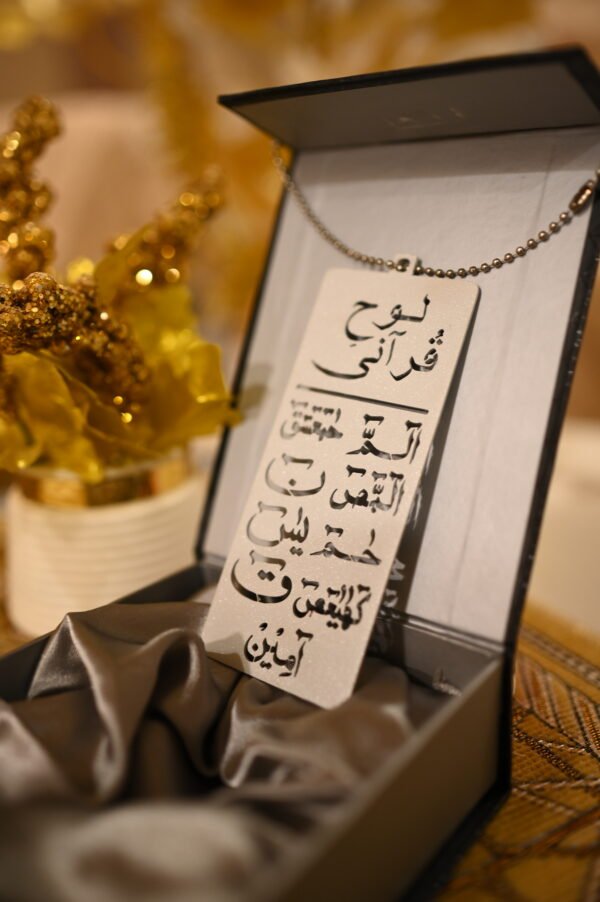 لوحِ
قُرآنی
الٓمّٓ حٰمٓعٓسٓقٓ
الٓمّٓصٓ ن
حٰمٓ يٰسٓ
كٓهٰيٰعٓصٓ قٓ
آمِيْن